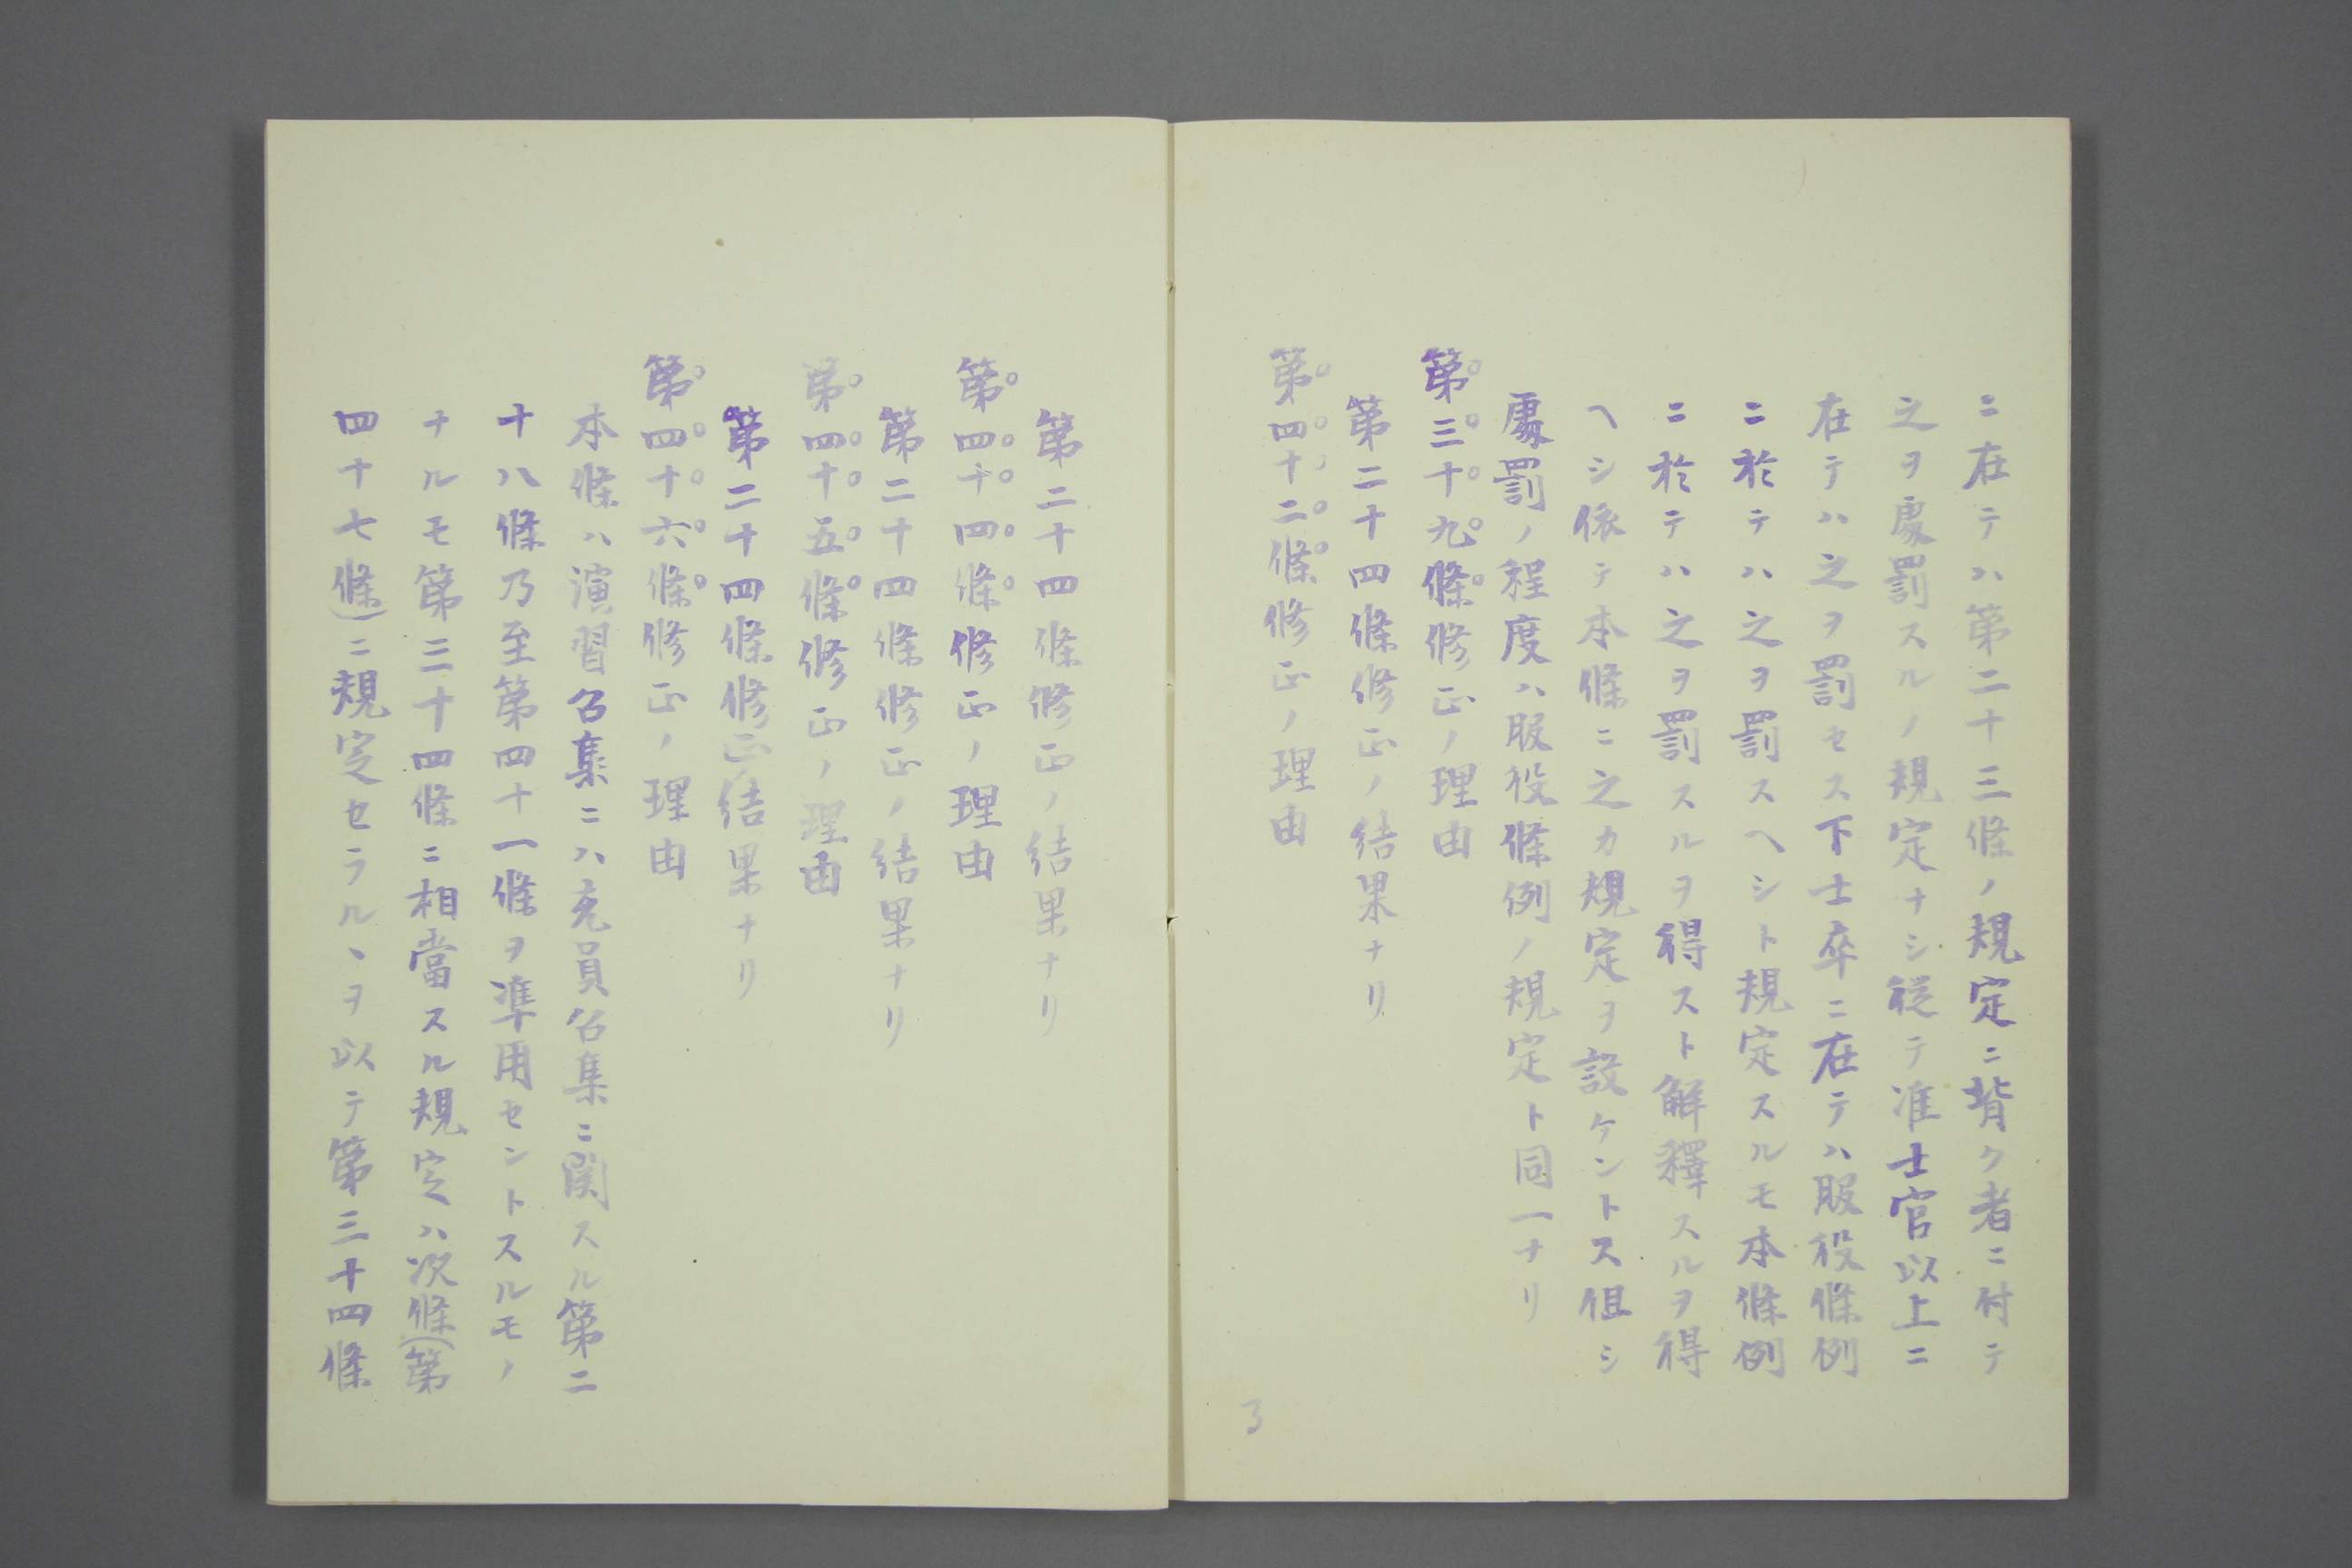 ニ在テハ第二十三條ノ規定ニ背ク者ニ付テ
之ヲ處罰スルノ規定ナシ従テ准士官以上ニ
在テハ之ヲ罰セス下士卒ニ在テハ服役條例
ニ於テハ之ヲ罰スヘシト規定スルモ本條例
ニ於テハ之ヲ罰スルヲ得スト解釋スルヲ得
ヘシ依テ本條ニ之カ規定ヲ設ケントス但シ
處罰ノ程度ハ服役條例ノ規定ト同一ナリ
第三十九條修正ノ理由
第二十四條修正ノ結果ナリ
第四十二條修正ノ理由
3
第二十四條修正ノ結果ナリ
第四十四條修正ノ理由
第二十四條修正ノ結果ナリ
第四十五條修正ノ理由
第二十四條修正ノ結果ナリ
第四十六條修正ノ理由
本條ハ演習召集ニハ充員召集ニ関スル第二
十八條乃至第四十一條ヲ準用セントスルモノ
ナルモ第三十四條ニ相當スル規定ハ次條(第
四十七條)ニ規定セラルヽヲ以テ第三十四條